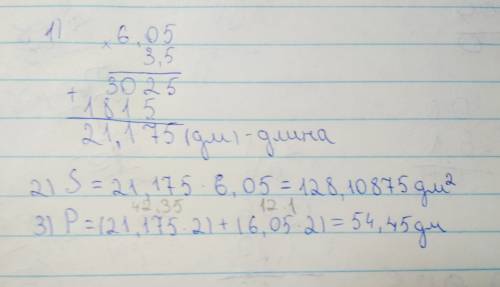 1) × 6,05
3,5
3025
+ 1815
21,175 (дм) - длина
2) S = 21,175 · 6,05 = 128,10875 дм²
42,35 12,1
3) P = (21,175 · 2) + (6,05 · 2) = 54,45 дм